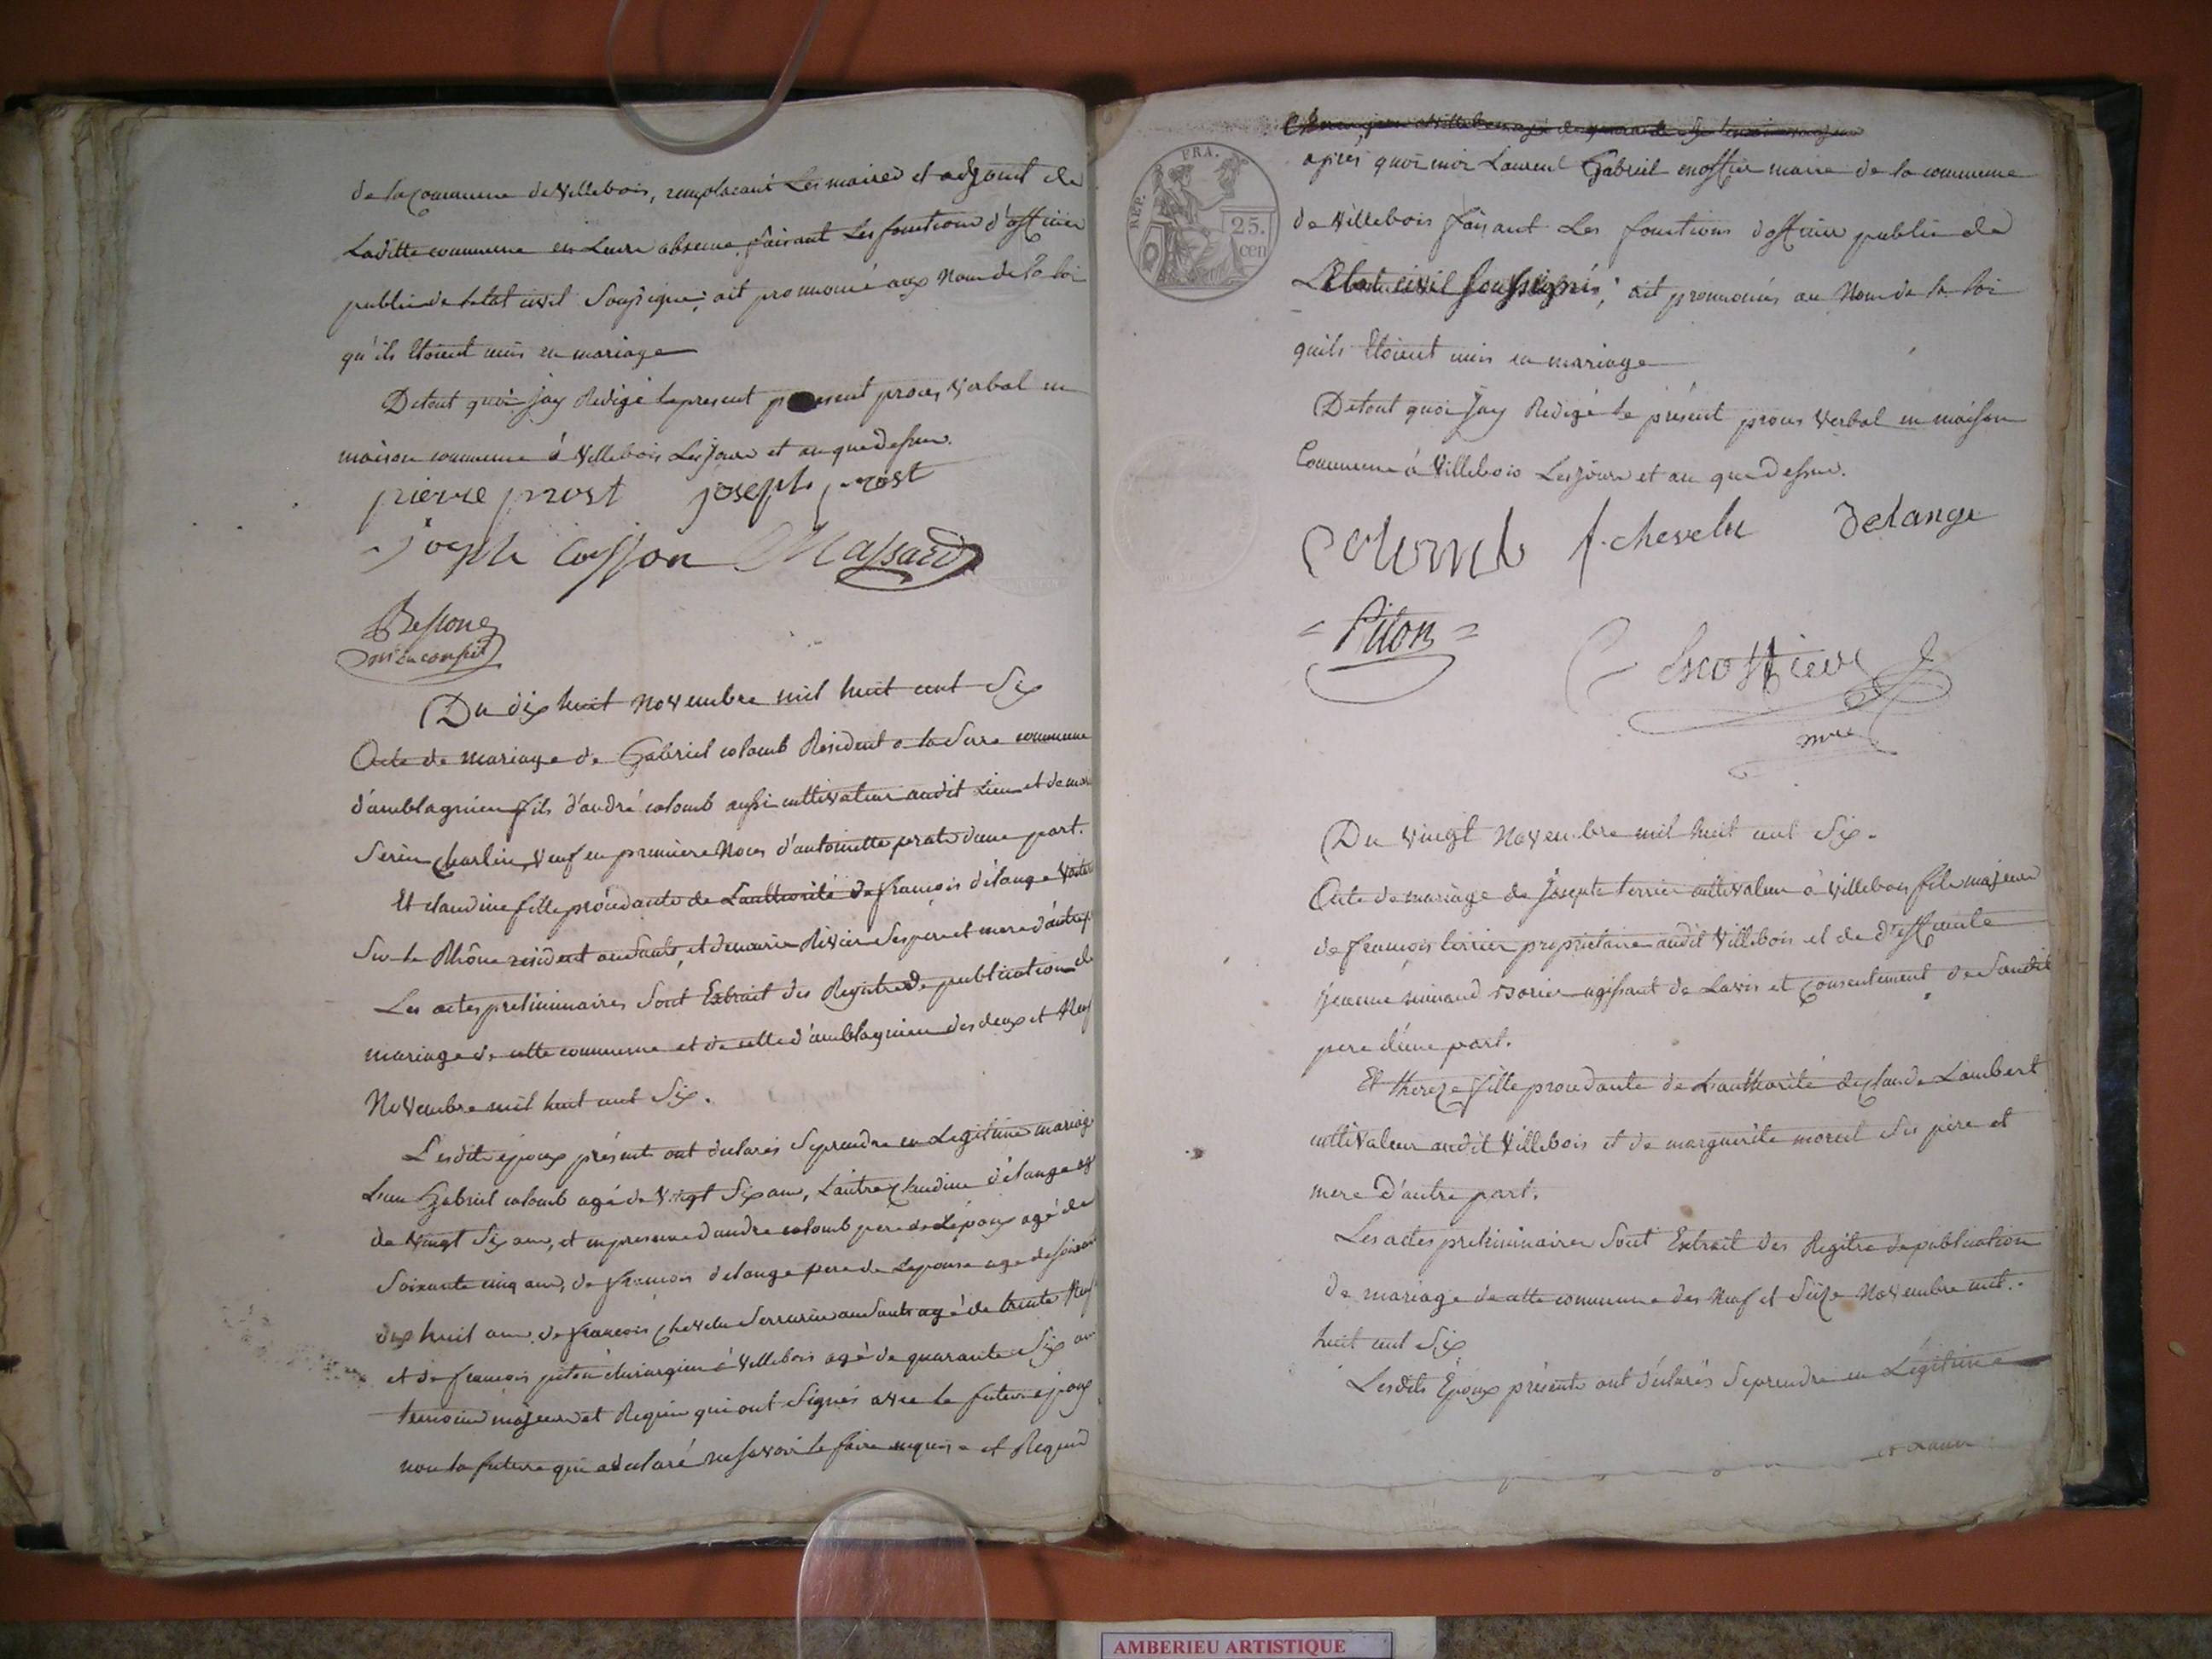 de la Commune de Villebois, remplacant Les maires et adjoint de
Laditte commune en Leure absence, faisant Les fonctions d'officier
public de Letat civil Soussigné; ait prononcé aux Nom de la loi
qu'ils Etoient unis en mariage
De tout quoi jay Redigé le present present proces Verbal en
maison commune à Villebois Les jour et an que dessus.
pierre prost joseph prost
joseph cosson Massard
Bessone
Du dix huit Novembre mil huit cent Six
Acte de mariage de Gabriel colomb Resident a la Serra commune
d'amblagnieu fils d'andré colomb aussi cultivateur audit Lieu et de
Serin Charlin, Veuf en premiere Noces d'antoinette perat d'une part.
Et claudine fille procédante de Lauthorité de françois délange
Sur le Rhône resident au Sault, et de marie Rivier Ses pere et mere d'autre
Les actes preliminaires Sont Extrait des Registre de publication de
mariage de cette commune et de celle d'amblagnieu des deux et Neuf
Novembre mil huit cent Six.
Lesdits époux présents ont declarés Se prendre en Legitime mariage
L'un Gabriel colomb agé de Vingt Six ans, L'autre Claudine délange
de Vingt Six ans, et en presence d'andre colomb pere de Lépoux agé de
Soixante cinq ans, de françois delange pere de Lepouse age de soixante
dix huit ans, de françois Chevelu Serrurier au Sault agé de trente Neuf
et de françois piton chirurgien à Villebois agé de quarante Six ans
temoins majeurs et Requis qui ont Signés avec le future époux
non la future qui a declaré ne savoir le faire enquise et Requis
apres quoi moi Laurent Gabriel escoffier maire de la commune
de Villebois faisant Les fonctions d'officier public de
L'Etat civil Soussignés; ait prononcés au Nom de la loi
quils Etoient unis en mariage
De tout quoi Jay Redigé le présent proces Verbal en maison
Commune à Villebois Les jour et an que dessus.
REP. FRA.
25.
cen
Colomb f. chevelu delange
= Piton =
Escoffier
mre
Du Vingt Novembre mil huit cent Six.
Acte de mariage de Joseph terrier cultivateur à Villebois fils majeur
de françois terrier proprietaire audit Villebois et de deffunte
jeanne agissant de Lavis et Consentement de Sondit
pere d'une part.
Et thereze fille procedante de Lauthorité de Claude Lambert
cultivateur audit Villebois et de marguerite morel Ses père et
mere d'autre part.
Les actes preliminaires Sont Extrait des Registre de publication
de mariage de cette commune des Neuf et Seize Novembre mil
huit cent Six
Lesdits Epoux présents ont déclarés Se prendre en Légitime
AMBERIEU ARTISTIQUE